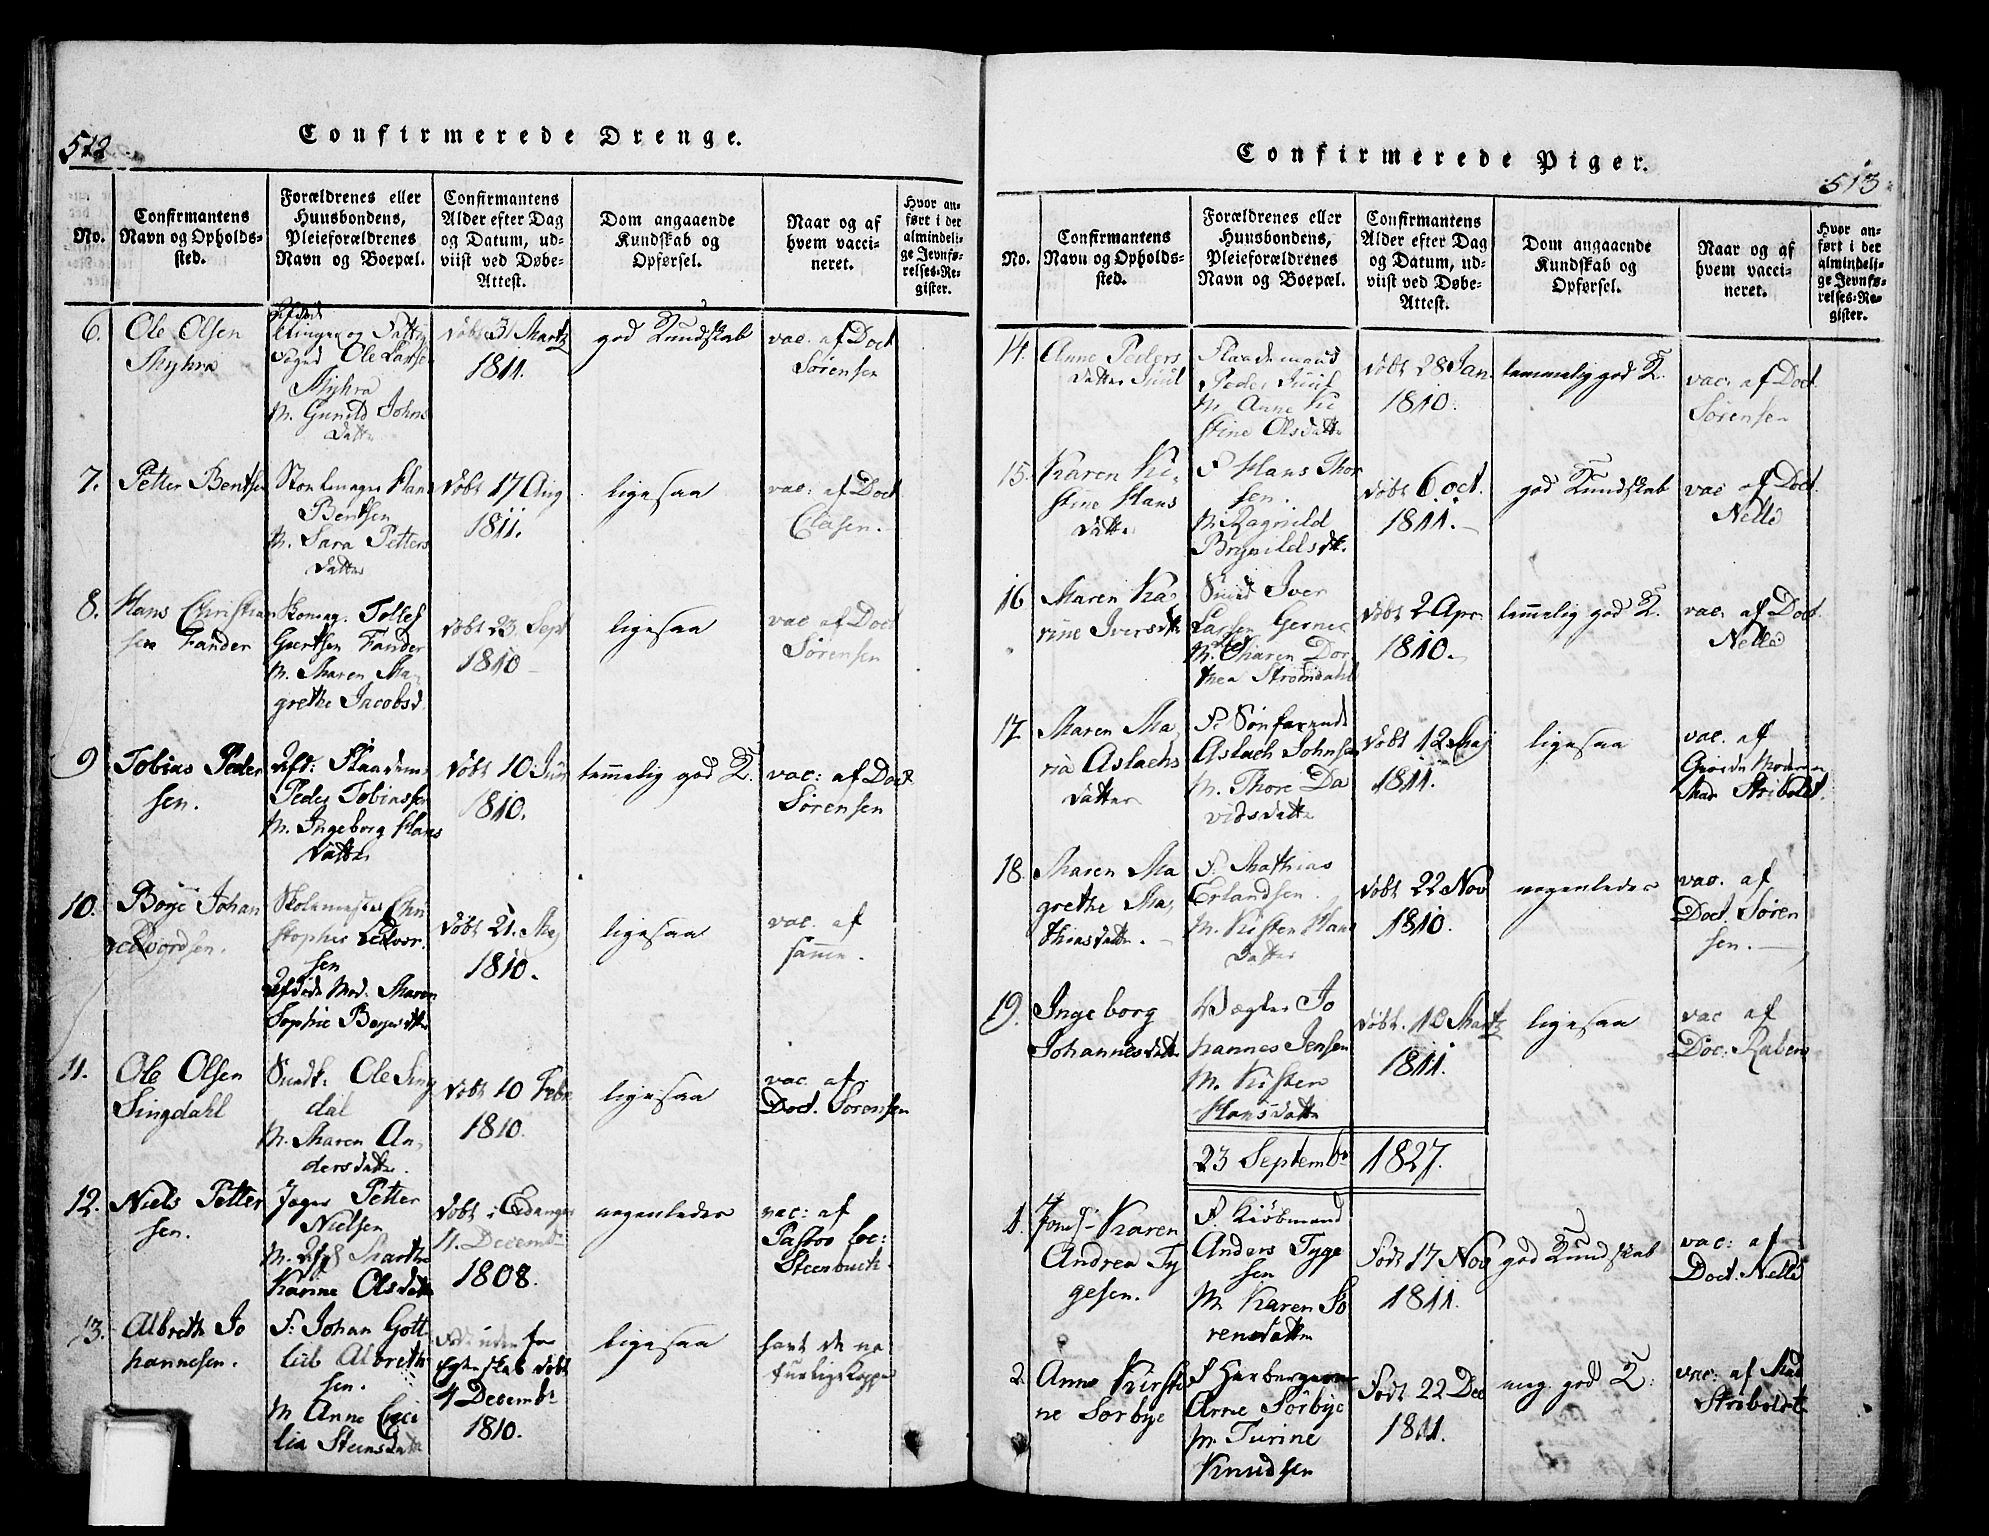 512
Confirmerede Drenge.
No.
Confirmantens
Navn og Opholds-
sted.
Forældrenes eller
Huusbondens,
Pleieforældrenes
Navn og Boepæl.
Confirmantens
Alder efter Dag
og Datum, ud-
viist ved Døbe-
Attest.
Dom angaaende
Kundskab og
Opførsel.
Naar og af
hvem vacci-
neret.
Hvor an-
ført i det
almindeli-
ge Jevnfø-
relses-Re-
gister.
6.
Ole Olsen
Myhra
Ole Larsen
Myhra
M. Gunild Johns
datter
døbt 31 Martz
1811.
god Kundskab
vac. af Doct
Sørensen
7.
Petter Bentsen
Hans
Bentsen
M. Sara Petters
datter
døbt 17 Aug
1811.
ligesaa
vac: af Doct
Clasen.
8.
Hans Christian
sen Fander
Skomag. Tollef
Giertsen Fander
M. Maren Ma
grethe Jacobsd.
døbt 23. Sept
1810
ligesaa
vac af Doct
Sørensen
9
Tobias Peder
sen.
Peder Tobiassen
M. Ingeborg Hans
datter
døbt 10 Juni
1810.
temmelig god K.
vac: af Doct
Sørensen
10.
Børje Johan
Edvordsen.
Skolemester Chri
stopher Edvor
sen
Afdøde Mod. Maren
Sophie Børgesdatter
døbt 21. Maj
1810.
ligesaa
vac. af
samme.
11.
Ole Olsen
Singdahl
Ole Sing
dal
M. Maren An
dersdatter.
døbt 10 Febr
1810.
ligesaa
vac. af
Doct. Sørensen
12.
Niels Petter
sen.
Jæger Petter
Nielsen
M. Afd Marthe
Karine Olsdatter
døbt i Eidanger
4. Decembr
1808.
nogenledes
vac: af
Pastor loc:
Steenbuch.
13.
Albreth Jo
hannesen.
F. Johan Gott
lieb Albreth
sen.
M Anne Ceci
lia Steensdatter
Født uden for
Egteskab døbt
4 Decembr
1810.
ligesaa
havt de na
turlige Kopper
Confirmerede Piger.
513
No.
Confirmantens
Navn og Opholds-
sted.
Forældrenes eller
Huusbondens,
Pleieforældrenes
Navn og Boepæl.
Confirmantens
Alder efter Dag
og Datum, ud-
viist ved Døbe-
Attest.
Dom angaaende
Kundskab og
Opførsel.
Naar og af
hvem vacci-
neret.
Hvor an-
ført i det
almindeli-
ge Jevnfø-
relses-Re-
gister.
14.
Anne Peders
datter Juul
Flaadmand
Peder Juul
M. Anne Ki
stine Olsdatter
døbt 28 Jan.
1810.
temmelig god K.
vac. af Doct.
Sørensen
15.
Karen Ki
stine Hans
datter
F Hans Thor
sen.
M. Ragnild
Brynildsdtr.
døbt 6 oct.
1811.
god Kundskab
vac af Doct.
Nelle
16
Maren Ka
rine Iversdtr
Smed Iver
Larsen Gerne
M. Maren Dor
thea Strømdahl
døbt 2 Apr
1810.
temelig god K.
vac. af Doct.
Nelle
17.
Maren Ma
ria Aslachs
datter
F. Sønfarende
Aslach Johnsen
M. Thore Da
vidsdatter
døbt 12 Maj
1811.
ligesaa
vac. af
Mad Stribolt.
18.
Maren Ma
grethe Ma
thiasdatter.
F. Mathias
Erlandsen.
M. Kisten Hans
datter
døbt 22 Nov
1810.
nogenledes
vac. af
Doct. Søren
sen.
19.
Ingeborg
Johannesdatter
Vægter Jo
hannes Jensen
M. Kisten
Hansdatter
døbt. 10 Martz
1811.
ligesaa
vac af
Doc. Raben
23 Septembr 1827.
1.
Karen
Andrea Ty
gesen.
F. Kiøbmand
Anders Tyge
sen
M. Karen Sø
rensdatter
Født 17 Nov
1811.
god Kundskab
vac: af
Doct. Nelle
2.
Anne Kirsti
ne Sørbye
Arne Sørbye
M. Turine
Knudsen
Født 22 Dec
1811.
meg. god K:
vac: af Mad
Striboldt